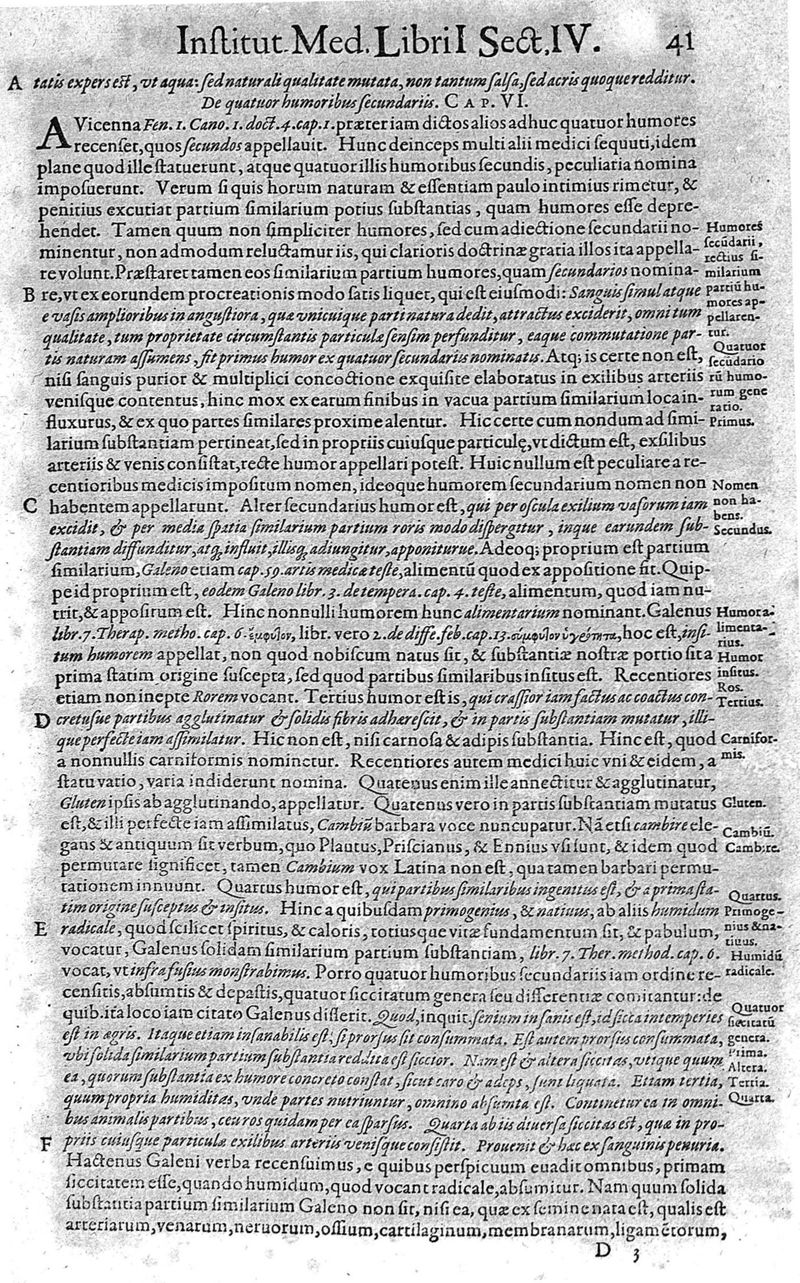 Inſtitut. Med. Libri I Sect. IV. 41
A tatis expers est, vt aqua: ſed naturali qualitate mutata, non tantum ſalſa, ſed acris quoque redditur.
De quatuor humoribus ſecundariis. CAP. VI.
AVicenna Fen. 1. Cano. 1. doct. 4. cap. 1. præter iam dictos alios adhuc quatuor humores
recenſet, quos ſecundos appellauit. Hunc deinceps multi alii medici ſequuti, idem
plane quod ille ſtatuerunt, atque quatuor illis humoribus ſecundis, peculiaria nomina
impoſuerunt. Verum ſi quis horum naturam & eſſentiam paulo intimius rimetur, &
penitius excutiat partium ſimilarium potius ſubſtantias, quam humores eſſe depre-
hendet. Tamen quum non ſimpliciter humores, ſed cum adiectione ſecundarii no-
minentur, non admodum reluctamur iis, qui clarioris doctrinæ gratia illos ita appella-
re volunt. Præſtaret tamen eos ſimilarium partium humores, quam ſecundarios nomina-
Humores
ſecūdarii,
rectius ſi-
milarium
partiū hu-
mores ap-
pellaren-
tur.
B re, vt ex eorundem procreationis modo ſatis liquet, qui eſt eiuſmodi: Sanguis ſimul atque
e vaſis amplioribus in anguſtiora, quæ vnicuique parti natura dedit, attractus exciderit, omni tum
qualitate, tum proprietate circumſtantis particulæ ſenſim perfunditur, eaque commutatione par-
tis naturam aſſumens, fit primus humor ex quatuor ſecundariis nominatis. Atq; is certe non eſt,
niſi ſanguis purior & multiplici concoctione exquiſite elaboratus in exilibus arteriis
veniſque contentus, hinc mox ex earum finibus in vacua partium ſimilarium loca in-
fluxurus, & ex quo partes ſimilares proxime alentur. Hic certe cum nondum ad ſimi-
larium ſubſtantiam pertineat, ſed in propriis cuiuſque particulę, vt dictum eſt, exſilibus
arteriis & venis conſiſtat, recte humor appellari poteſt. Huic nullum eſt peculiare a re-
centioribus medicis impoſitum nomen, ideoque humorem ſecundarium nomen non
Quatuor
ſecūdario
rū humo-
rum gene
ratio.
Primus.
Nomen
non ha-
bens.
C habentem appellarunt. Alter ſecundarius humor eſt, qui per oſcula exilium vaſorum iam
excidit, & per media ſpatia ſimilarium partium roris modo diſpergitur, inque earundem ſub-
ſtantiam diffunditur, atq; influit, illiſq; adiungitur, apponiturue. Adeoq; proprium eſt partium
ſimilarium, Galeno etiam cap. 59. artis medicæ teſte, alimentū quod ex appoſitione fit. Quip-
pe id proprium eſt, eodem Galeno libr. 3. de tempera. cap. 4. teſte, alimentum, quod iam nu-
trit, & appoſitum eſt. Hinc nonnulli humorem hunc alimentarium nominant. Galenus
libr. 7. Therap. metho. cap. 6. libr. vero 2. de diffe. feb. cap. 13. hoc eſt, inſi-
tum humorem appellat, non quod nobiſcum natus ſit, & ſubſtantiæ noſtræ portio ſita
prima ſtatim origine ſuſcepta, ſed quod partibus ſimilaribus inſitus eſt. Recentiores
etiam non inepte Rorem vocant. Tertius humor eſt is, qui craſſior iam factus ac coactus con-
Secundus.
Humor a-
limenta-
rius.
Humor
inſitus.
Ros.
Tertius.
D cretuſue partibus agglutinatur & ſolidis fibris adhæreſcit, & in partis ſubſtantiam mutatur, illi-
que perfecte iam aſſimilatur. Hic non eſt, niſi carnoſa & adipis ſubſtantia. Hinc eſt, quod
a nonnullis carniformis nominetur. Recentiores autem medici huic vni & eidem, a
ſtatu vatio, varia indiderunt nomina. Quatenus enim ille annectitur & agglutinatur,
Gluten ipſis ab agglutinando, appellatur. Quatenus vero in partis ſubſtantiam mutatus
eſt, & illi perfecte iam aſſimilatus, Cambiū barbara voce nuncupatur. Nā etſi cambire ele-
gans & antiquum ſit verbum, quo Plautus, Priſcianus, & Ennius vſi ſunt, & idem quod
permutare ſignificet, tamen Cambium vox Latina non eſt, qua tamen barbari permu-
tationem innuunt. Quartus humor eſt, qui partibus ſimilaribus ingenitus eſt, & a prima ſta-
tim origine ſuſceptus & inſitus. Hinc a quibuſdam primogenius, & natiuus, ab aliis humidum
Carnifor-
mis.
Gluten.
Cambiū.
Cambire.
Quartus.
Primoge-
nius & na-
tiuus.
E radicale, quod ſcilicet ſpiritus, & caloris, totiuſque vitæ fundamentum ſit, & pabulum,
vocatur, Galenus ſolidam ſimilarium partium ſubſtantiam, libr. 7. Ther. method. cap. 6.
vocat, vt infra fuſius monſtrabimus. Porro quatuor humoribus ſecundariis iam ordine re-
cenſitis, abſumtis & depaſtis, quatuor ſiccitatum genera ſeu differentiæ comitantur: de
quib. ita loco iam citato Galenus diſſerit. Quod, inquit, ſenium in ſanis eſt, id ſicca intemperies
eſt in ægris. Itaque etiam inſanabilis eſt, ſi prorſus ſit conſummata. Eſt autem prorſus conſummata,
vbi ſolida ſimilarium partium ſubſtantia reddita eſt ſiccior. Nam eſt & altera ſiccitas, vtique quum
ea, quorum ſubſtantia ex humore concreto conſtat, ſicut caro & adeps, ſunt liquata. Etiam tertia,
quum propria humiditas, vnde partes nutriuntur, omnino abſumta eſt. Continetur ea in omni-
bus animalis partibus, ceu ros quidam per ea ſparſus. Quarta ab iis diuerſa ſiccitas eſt, quæ in pro-
Humidū
radicale.
Quatuor
ſiccitatū
genera.
Prima.
Altera.
Tertia.
Quarta.
F priis cuiuſque particulæ exilibus arteriis veniſque conſiſtit. Prouenit & hæc ex ſanguinis penuria.
Hactenus Galeni verba recenſuimus, e quibus perſpicuum euadit omnibus, primam
ſiccitatem eſſe, quando humidum, quod vocant radicale, abſumitur. Nam quum ſolida
ſubſtantia partium ſimilarium Galeno non ſit, niſi ea, quæ ex ſemine nata eſt, qualis eſt
arteriarum, venarum, neruorum, oſſium, cartilaginum, membranarum, ligamētorum,
D 3